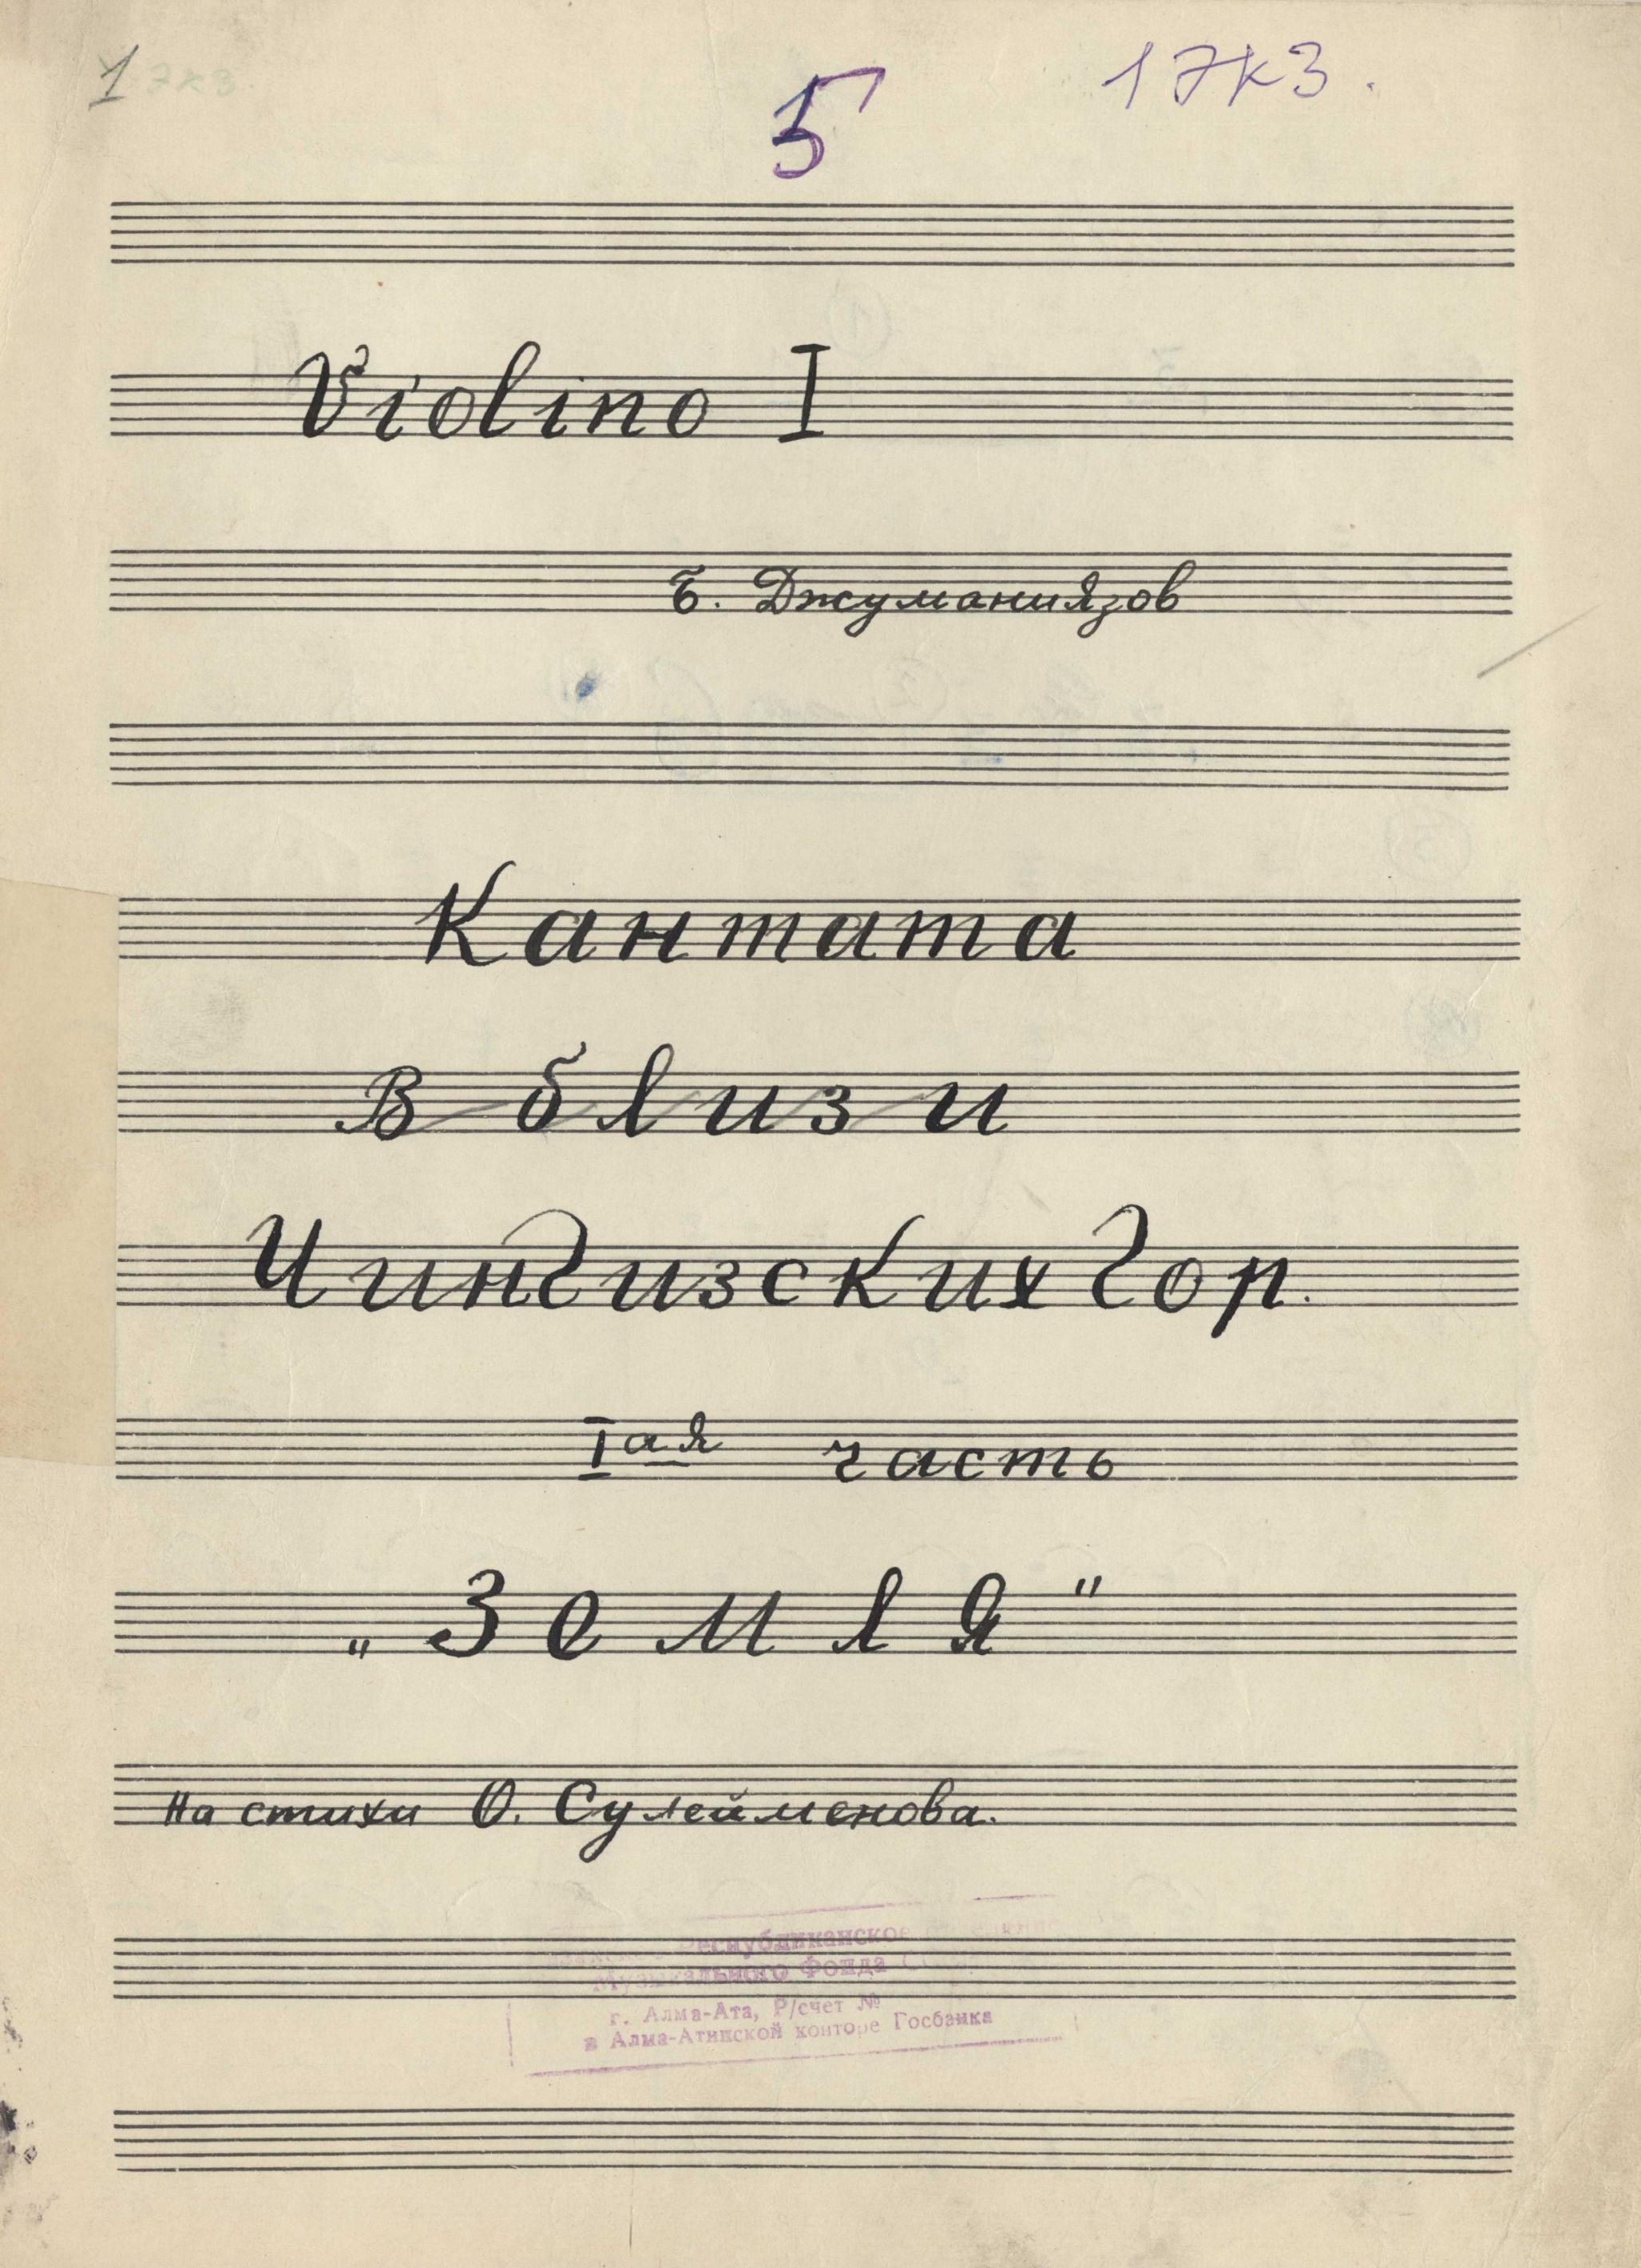 1 экз.
5
1 экз.
Violino I
Б. Джуманиязов
Кантата
В близи
Чингизских гор.
Iая часть
„Земля“
На стихи О. Сулейменова.
Республиканское
Музыкального Фонда
г. Алма-Ата, Р/счет №
в Алма-Атинской конторе Госбанка